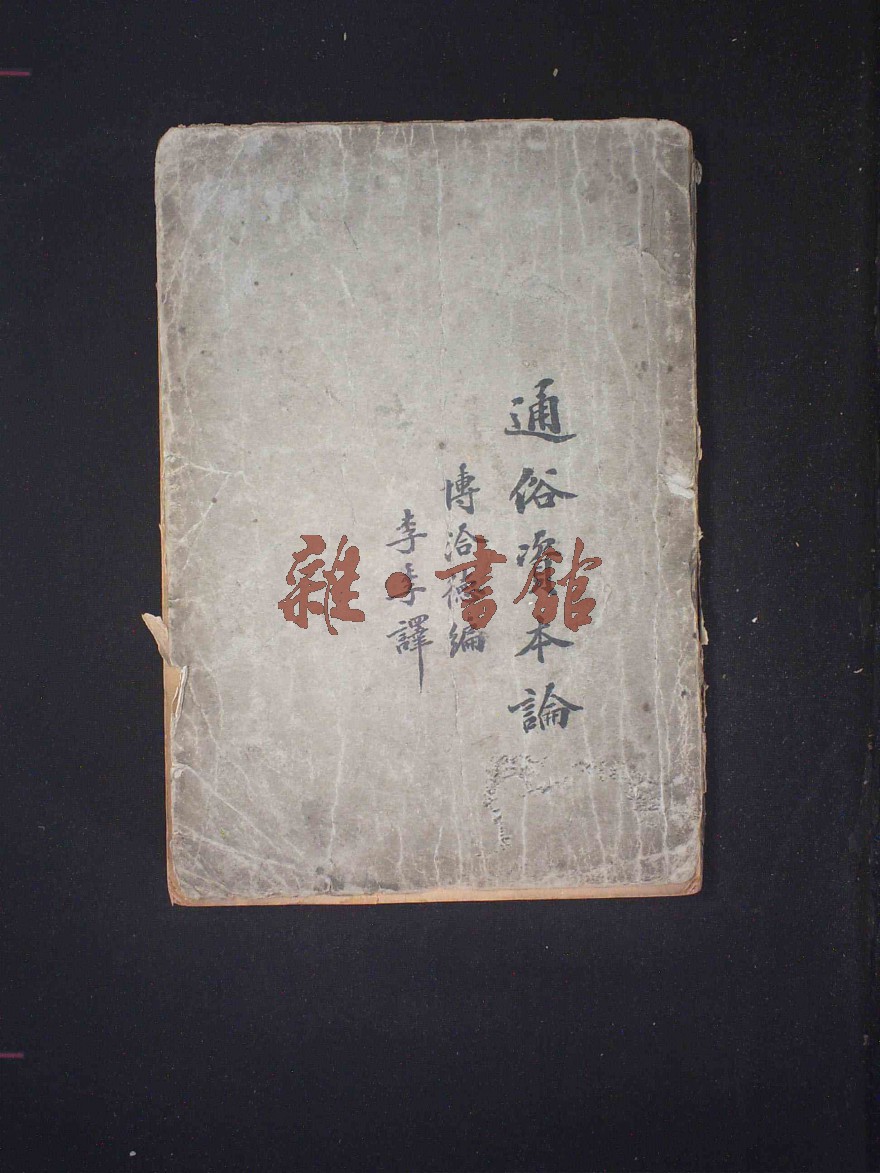 通俗資本論
博洽德編
李季譯
雜·書館